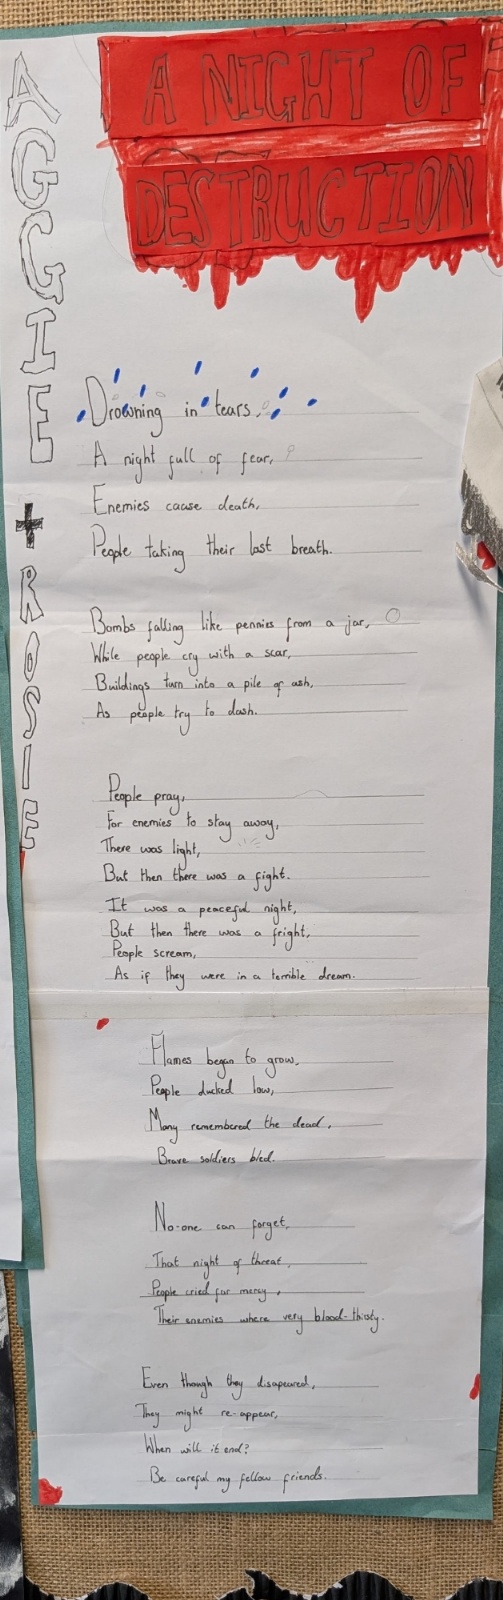 A NIGHT OF
DESTRUCTION
AGGIE + ROSIE
Drowning in tears,
A night full of fear,
Enemies cause death,
People taking their last breath.
Bombs falling like pennies from a jar,
While people cry with a scar,
Buildings turn into a pile of ash,
As people try to dash.
People pray,
For enemies to stay away,
There was light,
But then there was a fight.
It was a peaceful night,
But then there was a fright,
People scream,
As if they were in a terrible dream.
Flames began to grow,
People ducked low,
Many remembered the dead,
Brave soldiers bled.
No-one can forget,
That night of threat,
People cried for mercy,
Their enemies where very blood-thirsty.
Even though they disapeared,
They might re-appear,
When will it end?
Be careful my fellow friends.